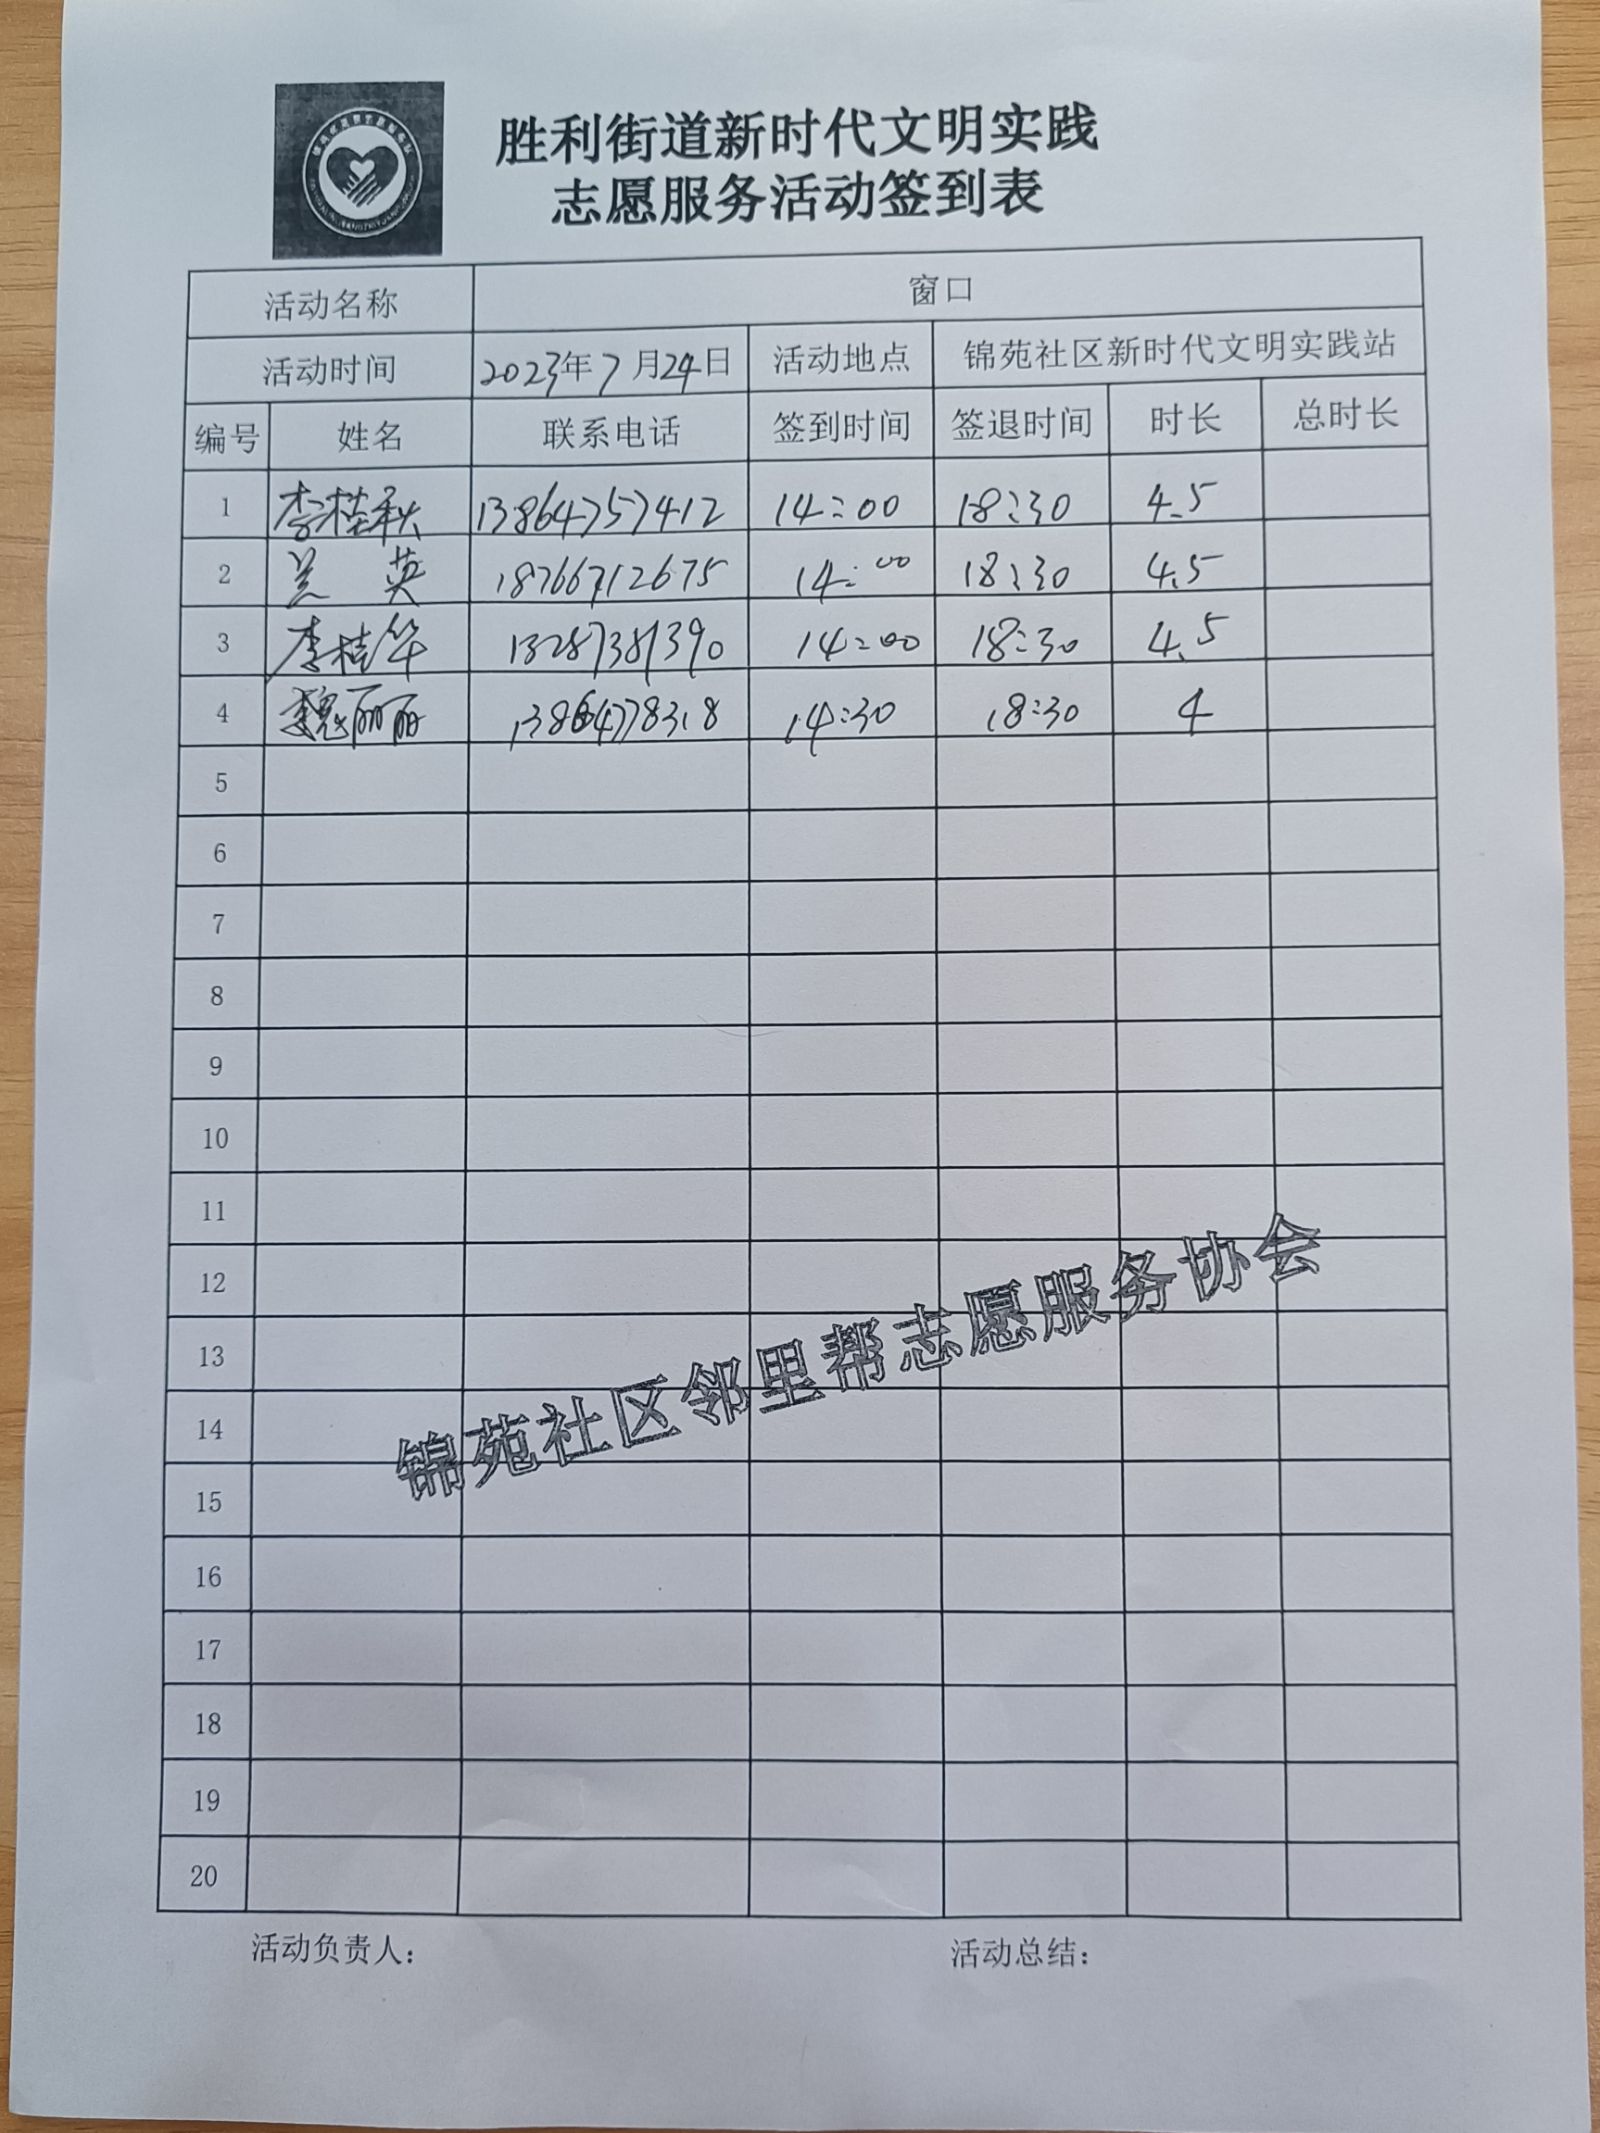 胜利街道新时代文明实践
志愿服务活动签到表
活动名称 窗口
活动时间 2023年7月24日 活动地点 锦苑社区新时代文明实践站
编号 姓名 联系电话 签到时间 签退时间 时长 总时长
1 李桂秋 13864757412 14:00 18:30 4.5
2 兰英 18766712675 14:00 18:30 4.5
3 李桂华 13287381390 14:00 18:30 4.5
4 魏丽丽 13864778318 14:30 18:30 4
5
6
7
8
9
10
11
12
13
14
15
16
17
18
19
20
锦苑社区邻里帮志愿服务协会
活动负责人： 活动总结：